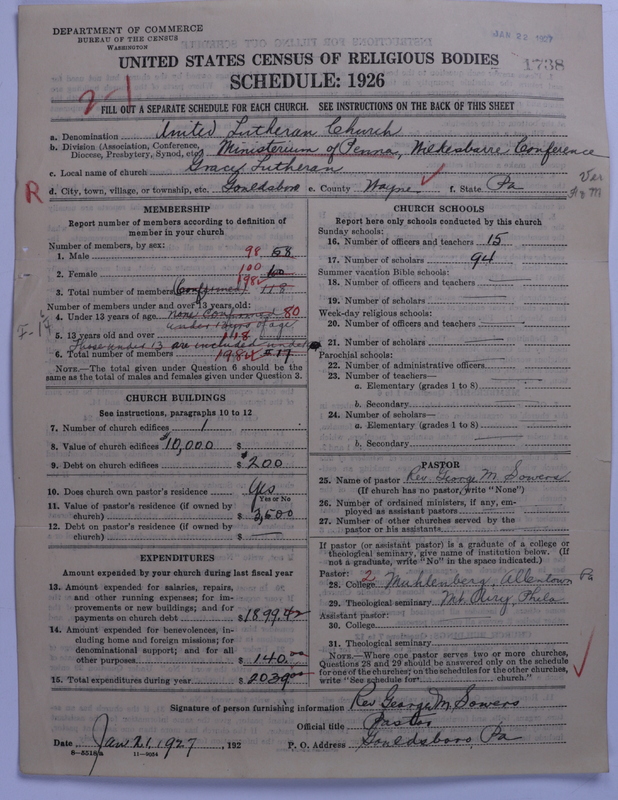 DEPARTMENT OF COMMERCE
BUREAU OF THE CENSUS
WASHINGTON
JAN 22 1927
1738
UNITED STATES CENSUS OF RELIGIOUS BODIES
SCHEDULE: 1926
2-1
FILL OUT A SEPARATE SCHEDULE FOR EACH CHURCH. SEE INSTRUCTIONS ON THE BACK OF THIS SHEET
a. Denomination United Lutheran Church
b. Division (Association, Conference, Diocese, Presbytery, Synod, etc.) Ministerium of Penna, Wilkesbarre Conference
c. Local name of church Grace Lutheran
R d. City, town, village, or township, etc. Gouldsboro e. County Wayne f. State Pa
Ver
MEMBERSHIP
Report number of members according to definition of member in your church
Number of members, by sex:
1. Male 98 58
2. Female 100 60
3. Total number of members (Confirmed) 198 118
Number of members under and over 13 years old:
4. Under 13 years of age none Confirmed 80
under 13 yrs of age
5. 13 years old and over 118
Those under 13 are included under
6. Total number of members 198
NOTE.—The total given under Question 6 should be same as the total of males and females given under Question 3.
CHURCH BUILDINGS
See instructions, paragraphs 10 to 12
7. Number of church edifices 1
8. Value of church edifices $10,000 $
9. Debt on church edifices $ 200
10. Does church own pastor's residence Yes
Yes or No
11. Value of pastor's residence (if owned by church) $ 3,500
12. Debt on pastor's residence (if owned by church) $ —
EXPENDITURES
Amount expended by your church during last fiscal year
13. Amount expended for salaries, repairs, and other running expenses; for improvements or new buildings; and for payments on church debt $ 1899.42
14. Amount expended for benevolences, including home and foreign missions; for denominational support; and for all other purposes $ 140.00
15. Total expenditures during year $ 2039.00
CHURCH SCHOOLS
Report here only schools conducted by this church
Sunday schools:
16. Number of officers and teachers 15
17. Number of scholars 94
Summer vacation Bible schools:
18. Number of officers and teachers —
19. Number of scholars —
Week-day religious schools:
20. Number of officers and teachers —
21. Number of scholars —
Parochial schools:
22. Number of administrative officers —
23. Number of teachers—
a. Elementary (grades 1 to 8) —
b. Secondary —
24. Number of scholars—
a. Elementary (grades 1 to 8) —
b. Secondary —
PASTOR
25. Name of pastor Rev. George M. Sowers
(If church has no pastor, write "None")
26. Number of ordained ministers, if any, employed as assistant pastors
27. Number of other churches served by the pastor or his assistants
If pastor (or assistant pastor) is a graduate of a college or theological seminary, give name of institution below. (If not a graduate, write "No" in the space indicated.)
Pastor: 2
28. College Muhlenberg, Allentown Pa
29. Theological seminary Mt. Airy, Phila
Assistant pastor:
30. College
31. Theological seminary
NOTE.—Where one pastor serves two or more churches, Questions 28 and 29 should be answered only on the schedule for one of the churches; on the schedules for the other churches, write "See schedule for church."
Signature of person furnishing information Rev George M. Sowers
Official title Pastor
Date Jan 21, 1927, 192 P. O. Address Gouldsboro, Pa
8—5518a 11—9034